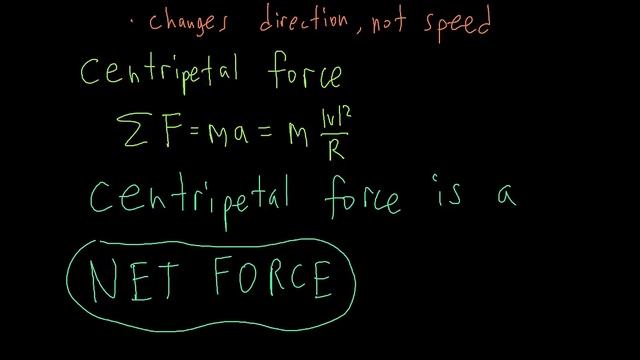 · changes direction, not speed
centripetal force
∑F = ma = m |v|²/R
centripetal force is a
NET FORCE